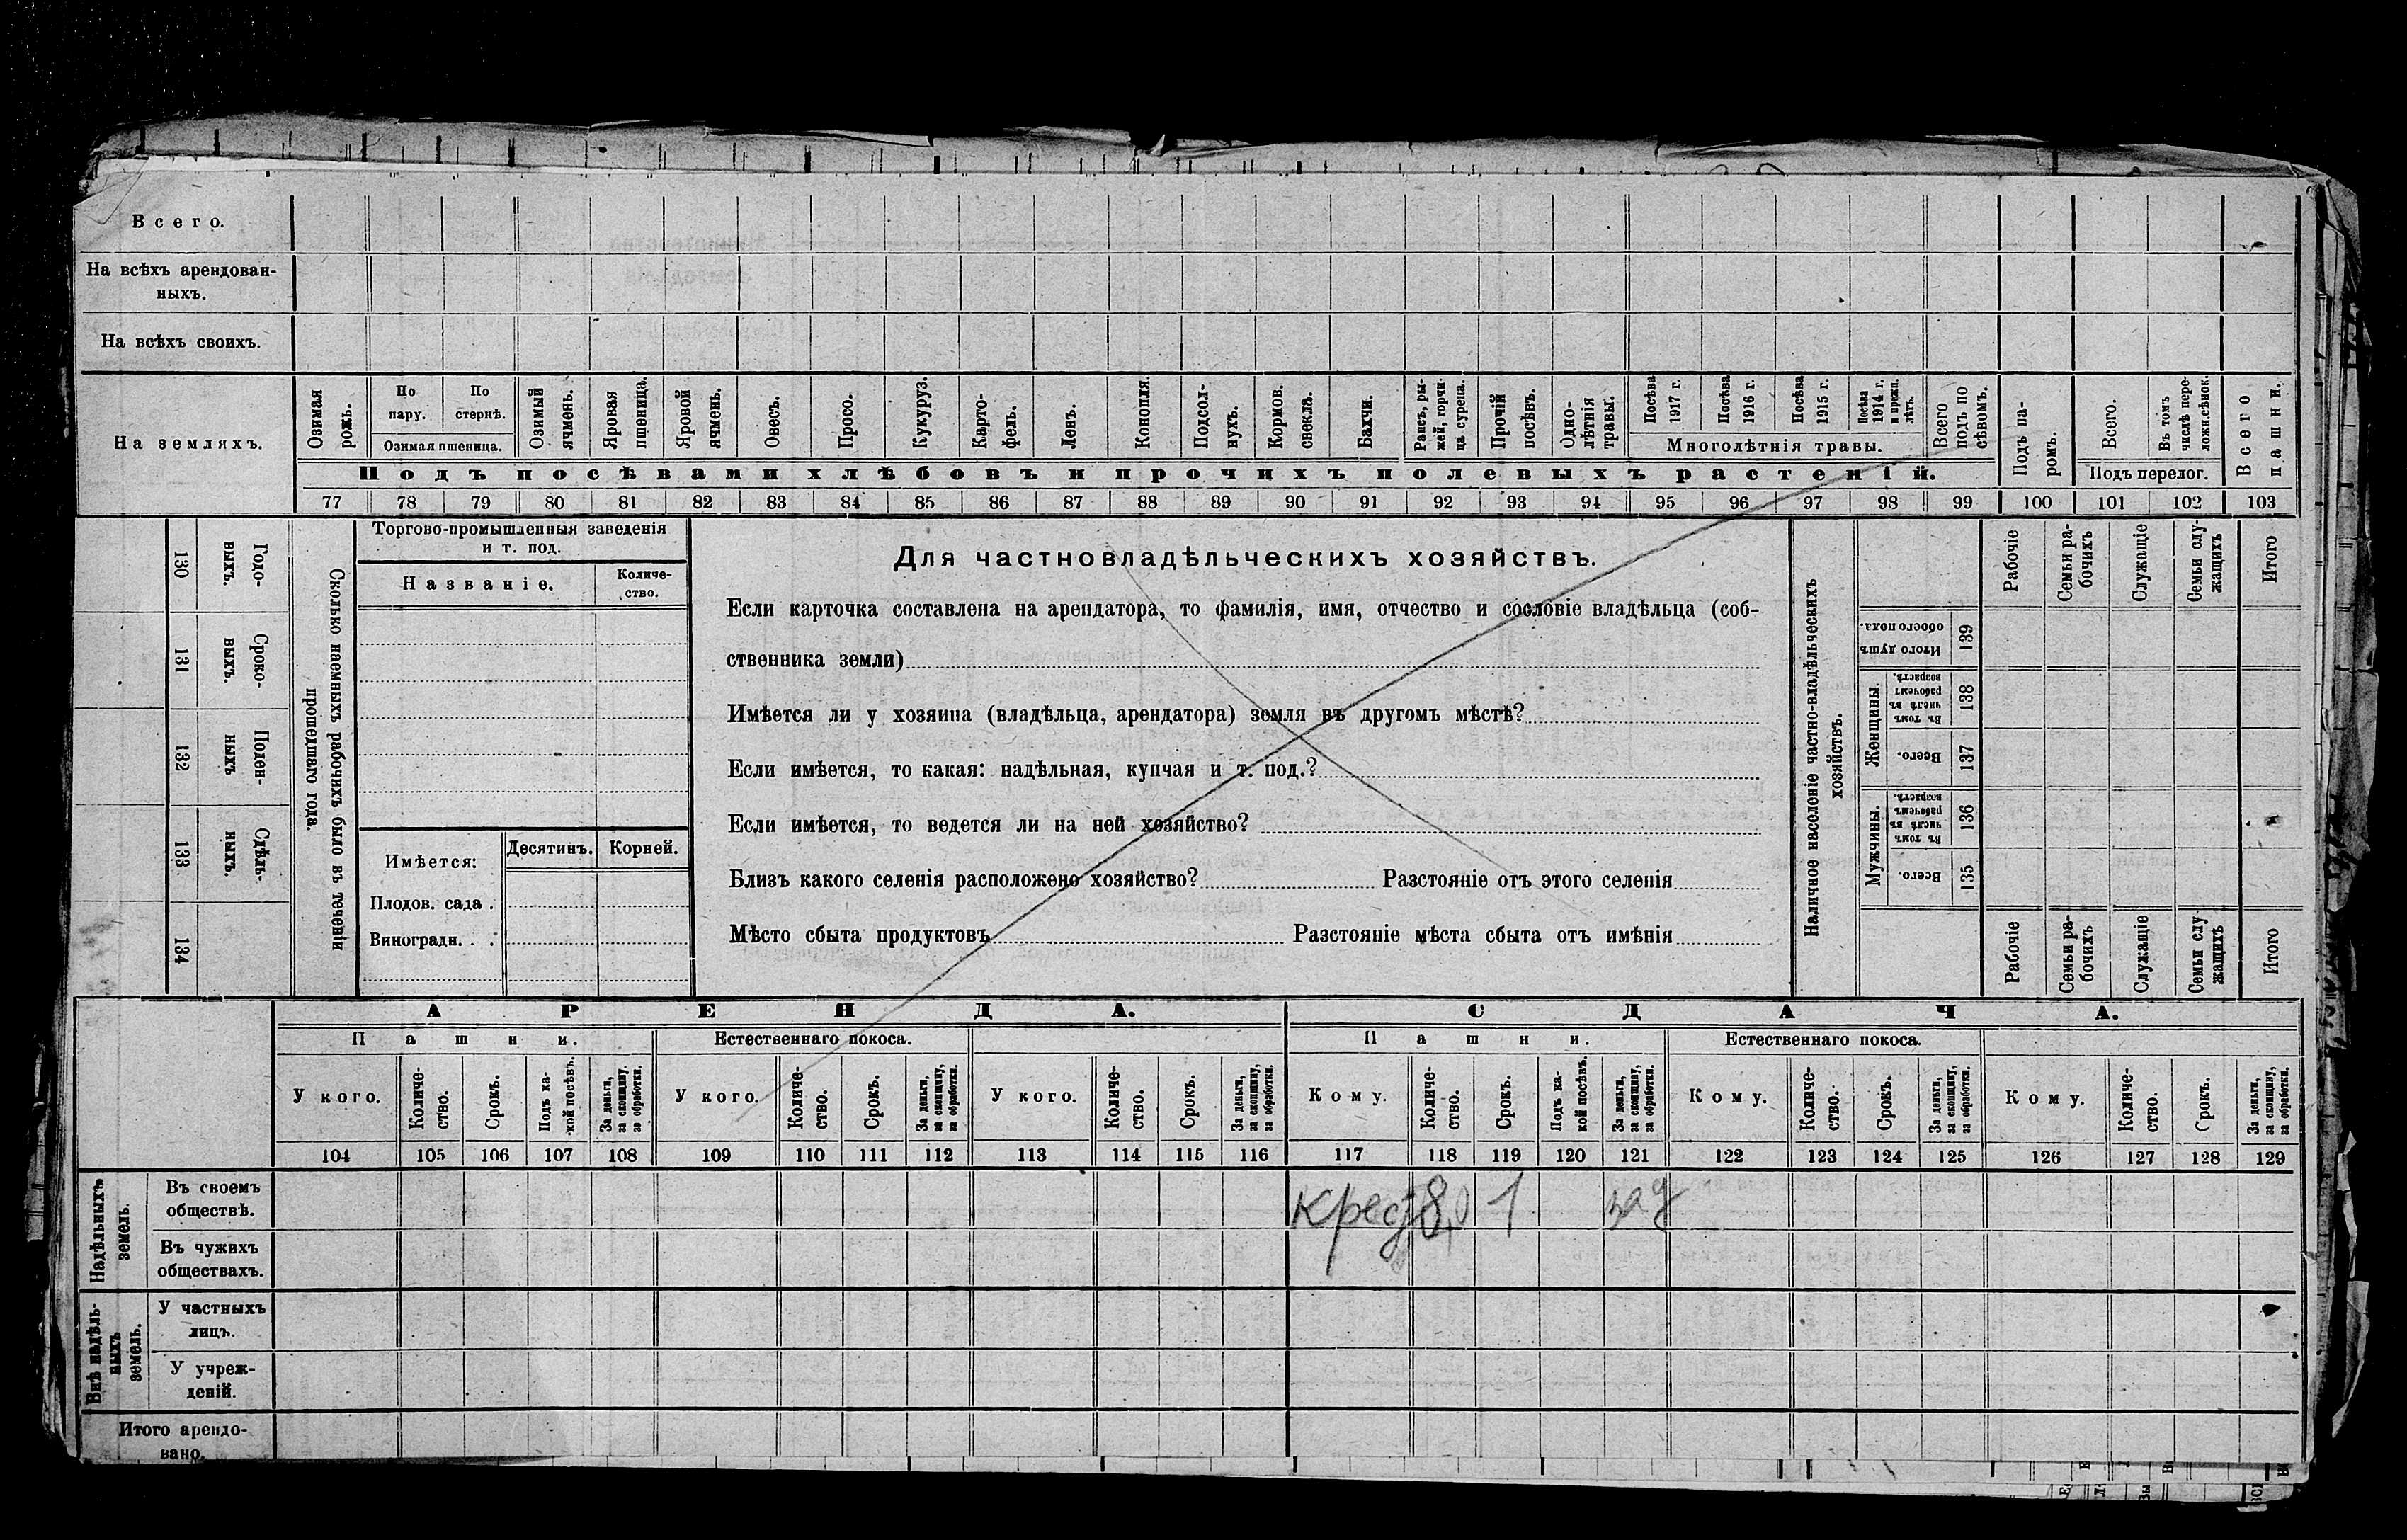 Всего.
На всѣхъ арендован-
ныхъ.
На всѣхъ своихъ.
На земляхъ.
Озимая рожь.
По пару.
По стернѣ.
Озимая пшеница.
Озимый ячмень.
Яровая пшеница.
Яровой ячмень.
Овесъ.
Просо.
Кукуруз.
Карто-
фель.
Ленъ.
Конопля.
Подсол-
нухъ.
Кормов.
свекла.
Бахчи.
Рапсъ, ры-
жей, горчи-
ца сурепа.
Прочій
посѣвъ.
Одно-
лѣтнія
травы.
Посѣва
1917 г.
Посѣва
1916 г.
Посѣва
1915 г.
Посѣва
1914 г.
и прежн.
лѣтъ.
Многолѣтнія травы.
Всего
подъ по
сѣвомъ.
Подъ па-
ромъ.
Всего.
Въ томъ
числѣ пере-
ложн.сѣнок.
Подъ перелог.
Всего
пашни.
Подъ посѣвами хлѣбовъ и прочихъ полевыхъ растеній.
77 78 79 80 81 82 83 84 85 86 87 88 89 90 91 92 93 94 95 96 97 98 99 100 101 102 103
130
Годо-
выхъ.
131
Сроко-
выхъ.
132
Поден-
ныхъ
133
Сдѣль-
ныхъ.
134
Сколько наемныхъ рабочихъ было въ теченіи
прошедшаго года.
Торгово-промышленныя заведенія
и т. под.
Названіе.
Количе-
ство.
Имѣется:
Десятинъ.
Корней.
Плодов. сада .
Виноградн. . .
Для частновладѣльческихъ хозяйствъ.
Если карточка составлена на арендатора, то фамилія, имя, отчество и сословіе владѣльца (соб-
ственника земли)
Имѣется ли у хозяина (владѣльца, арендатора) земля въ другомъ мѣстѣ?
Если имѣется, то какая: надѣльная, купчая и т. под.?
Если имѣется, то ведется ли на ней хозяйство?
Близъ какого селенія расположено хозяйство? Разстояніе отъ этого селенія
Мѣсто сбыта продуктовъ Разстояніе мѣста сбыта отъ имѣнія
Наличное населеніе частно-владѣльческихъ
хозяйствъ.
Рабочіе
Семьи ра-
бочихъ
Служащіе
Семьи слу-
жащихъ
Итого
Итого душъ
обоего пола.
139
Женщины.
Въ томъ
числѣ въ
рабочемъ
возрастѣ.
138
Всего.
137
Мужчины.
Въ томъ
числѣ въ
рабочемъ
возрастѣ.
136
Всего.
135
Рабочіе
Семьи ра-
бочихъ
Служащіе
Семьи слу
жащихъ
Итого
АРЕНДА.
СДАЧА.
Пашни.
Естественнаго покоса.
Пашни.
Естественнаго покоса.
У кого.
Количе-
ство.
Срокъ.
Подъ ка-
кой посѣвъ.
За деньги,
за скопщину,
за обработки.
У кого.
Количе-
ство.
Срокъ.
За деньги,
за скопщину,
за обработки.
У кого.
Количе-
ство.
Срокъ.
За деньги,
за скопщину,
за обработки.
Кому.
Количе-
ство.
Срокъ.
Подъ ка-
кой посѣвъ.
За деньги,
за скопщину,
за обработки.
Кому.
Количе-
ство.
Срокъ.
За деньги,
за скопщину,
за обработки.
Кому.
Количе-
ство.
Срокъ.
За деньги,
за скопщину,
за обработки.
104 105 106 107 108 109 110 111 112 113 114 115 116 117 118 119 120 121 122 123 124 125 126 127 128 129
Надѣльныхъ
земель.
Въ своемъ
обществѣ.
крест 8,0 1 за д
Въ чужихъ
обществахъ.
Внѣ надѣль-
ныхъ
земель.
У частныхъ
лицъ.
У учреж-
деній.
Итого арендо-
вано.